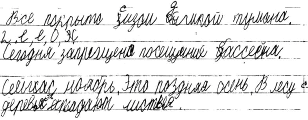 Все покрыто сизой дымкой тумана.
2, 2, 2, 0, 3К
Сегодня запрещено посещение бассейна.
Сейчас ноябрь. Это поздняя осень. В лесу с
деревьев опадают листья.